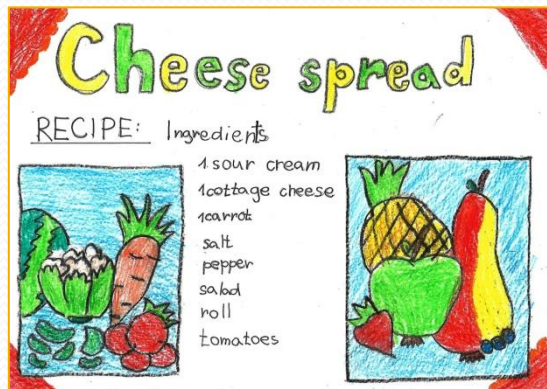 Cheese spread
RECIPE: Ingredients
1 sour cream
1 cottage cheese
1 carrot
salt
pepper
salad
roll
tomatoes